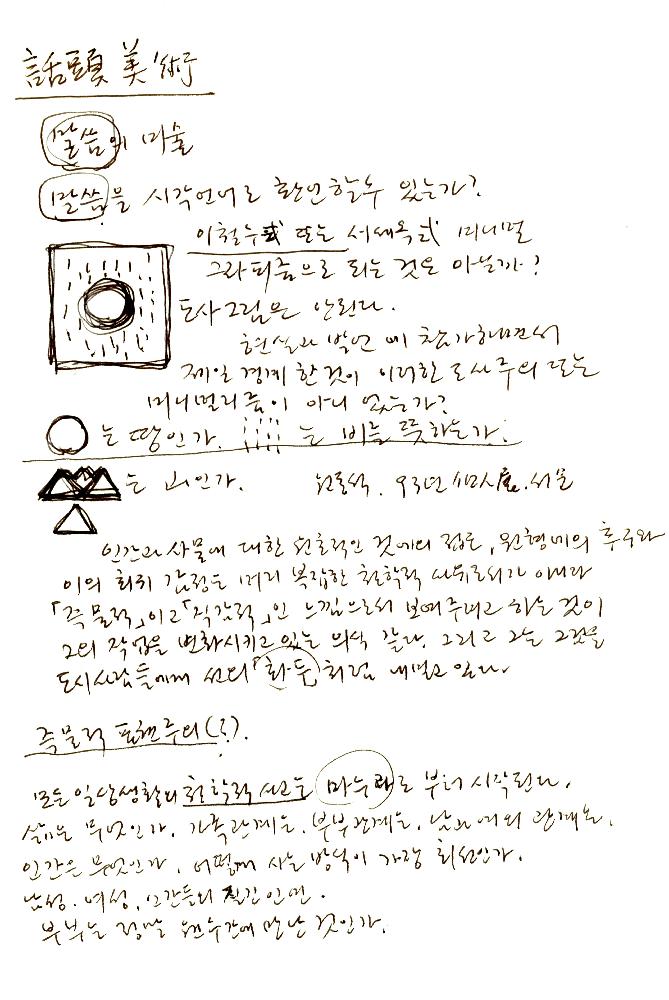 話頭美術
말씀의 미술
말씀을 시각언어로 확인할수 있는가?
이철수式 또는 서세옥式 미니멀
그라피즘으로 되는 것은 아닐까?
도사그림은 안된다.
현실과 발언에 참가하면서
제일 경계한것이 이러한 도사주의 또는
미니멀리즘이 아니었는가?
는 땅인가. 는 비를 뜻하는가.
는 산인가. 93년 서울
인간과 사물에 대한 원초적인 것에의 접근, 원형에의 추구와
이의 회귀 감정은 머리 복잡한 철학적 사유로서가 아니라
「즉물적」이고「직감적」인 느낌으로서 보여주려고 하는 것이
그의 작업을 변화시키고 있는 의식 같다. 그리고 그는 그것을
도시사람들에게 선의「화두」처럼 내밀고 있다.
즉물적 표현주의(?).
모든 일상생활의 철학적 사고는 마누라로 부터 시작된다.
삶은 무엇인가. 가족관계는. 부부관계는. 남과 여의 관계는.
인간은 무엇인가. 어떻게 사는 방식이 가장 최선인가.
남성. 여성. 인간들의 질긴 인연.
부부는 정말 원수간에 만난 것인가.